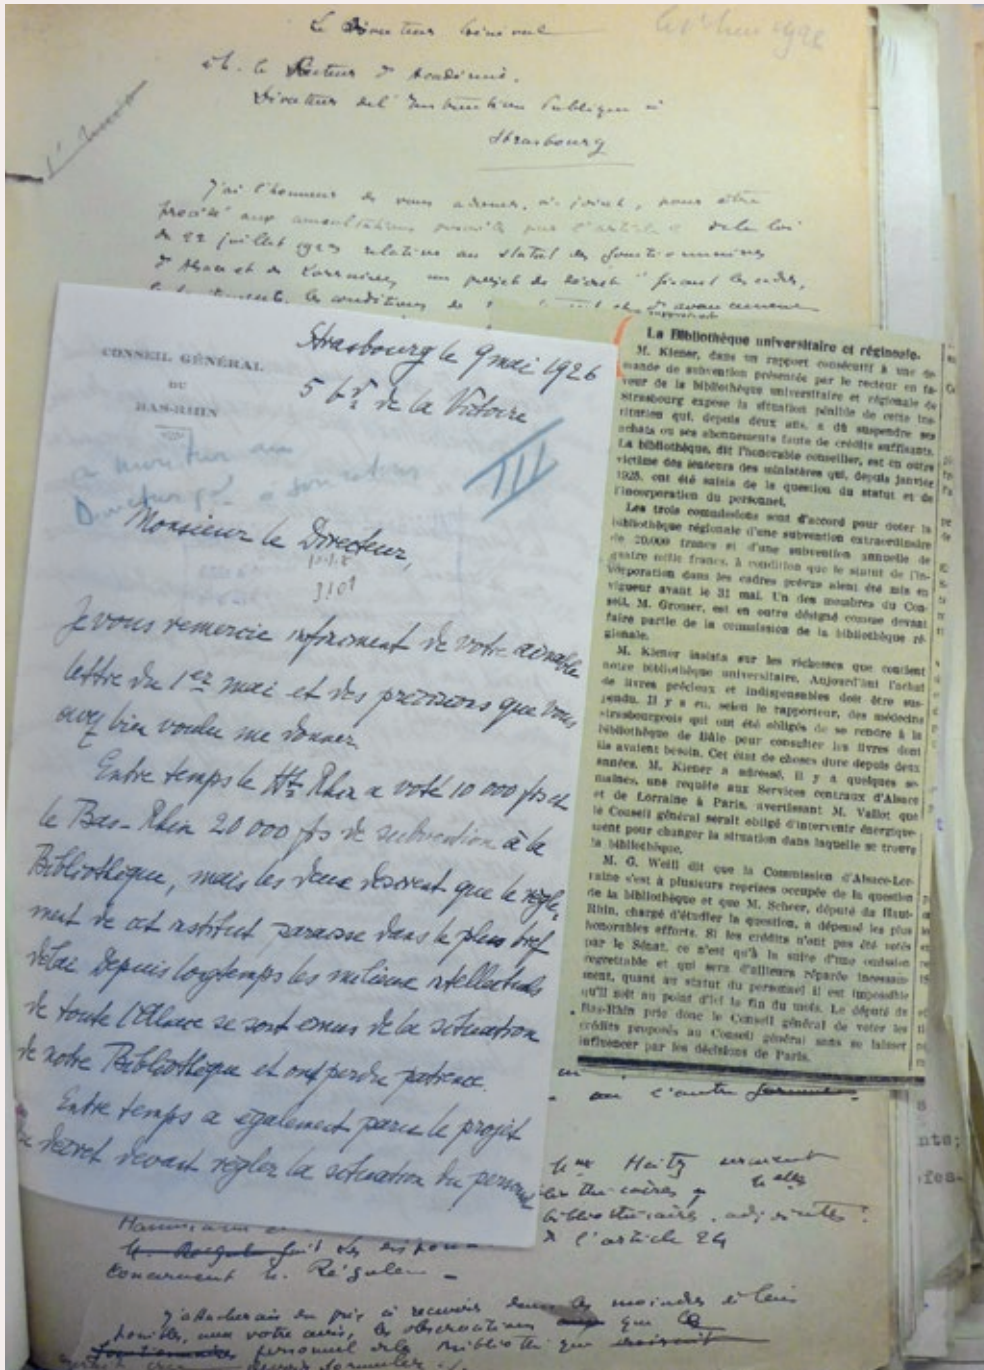 Le Directeur Général
à M. le Recteur d'Académie,
Directeur de l'Instruction Publique à
Strasbourg
J'ai l'honneur de vous adresser, ci-joint, pour être
procédé aux consultations par l'article de la loi
du 22 juillet 1923 relative au statut des fonctionnaires
d'Alsace et de Lorraine, un projet de décret "fixant les cadres,
les traitements, les conditions de avancement
CONSEIL GÉNÉRAL
DU
BAS-RHIN
Strasbourg le 9 mai 1926
5 bd de la Victoire
III
Monsieur le Directeur,
Je vous remercie infiniment de votre aimable
lettre du 1er mai et des précisions que vous
avez bien voulu me donner
Entre temps le Ht Rhin a voté 10 000 frs et
le Bas-Rhin 20 000 frs de subvention à la
Bibliothèque, mais les deux désirent que le règle-
ment de cet institut paraisse dans le plus bref
délai. Depuis longtemps les milieux intellectuels
de toute l'Alsace se sont émus de la situation
de notre Bibliothèque et ont perdu patience.
Entre temps a également paru le projet
de décret devant régler la situation du personnel
La Bibliothèque universitaire et régionale.
M. Kiener, dans un rapport consécutif à une de-
mande de subvention présentée par le recteur en fa-
veur de la bibliothèque universitaire et régionale de
Strasbourg expose la situation pénible de cette ins-
titution qui, depuis deux ans, a dû suspendre ses
achats ou ses abonnements faute de crédits suffisants.
La bibliothèque, dit l'honorable conseiller, est en outre
victime des lenteurs des ministères qui, depuis janvier
1925, ont été saisis de la question du statut et de
l'incorporation du personnel.
Les trois commissions sont d'accord pour doter la
bibliothèque régionale d'une subvention extraordinaire
de 20.000 francs et d'une subvention annuelle de
quatre mille francs, à condition que le statut de l'in-
corporation dans les cadres prévus aient été mis en
vigueur avant le 31 mai. Un des membres du Con-
seil, M. Gromer, est en outre désigné comme devant
faire partie de la commission de la bibliothèque ré-
gionale.
M. Kiener insista sur les richesses que contient
notre bibliothèque universitaire. Aujourd'hui l'achat
de livres précieux et indispensables doit être sus-
pendu. Il y a eu, selon le rapporteur, des médecins
strasbourgeois qui ont été obligés de se rendre à la
bibliothèque de Bâle pour consulter les livres dont
ils avaient besoin. Cet état de choses dure depuis deux
années. M. Kiener a adressé, il y a quelques se-
maines, une requête aux Services centraux d'Alsace
et de Lorraine à Paris, avertissant M. Vallot que
le Conseil général serait obligé d'intervenir énergique-
ment pour changer la situation dans laquelle se trouve
la bibliothèque.
M. G. Weill dit que la Commission d'Alsace-Lor-
raine s'est à plusieurs reprises occupée de la question
de la bibliothèque et que M. Scheer, député du Haut-
Rhin, chargé d'étudier la question, a dépensé les plus
honorables efforts. Si les crédits n'ont pas été votés
par le Sénat, ce n'est qu'à la suite d'une omission
regrettable et qui sera d'ailleurs réparée incessam-
ment, quant au statut du personnel il est impossible
qu'il soit au point d'ici la fin du mois. Le député du
Bas-Rhin prie donc le Conseil général de voter les
crédits proposés au Conseil général sans se laisser
influencer par les décisions de Paris.
ou l'autre formule.
Heitz seraient
bibliothécaires adjointes
le Règle fait les dispo à l'article 24
concernant le Règlem
J'attacherais du prix à recevoir dans les moindres délais
possibles, avec votre avis, les observations que le
personnel de la Bibliothèque
devoir formuler